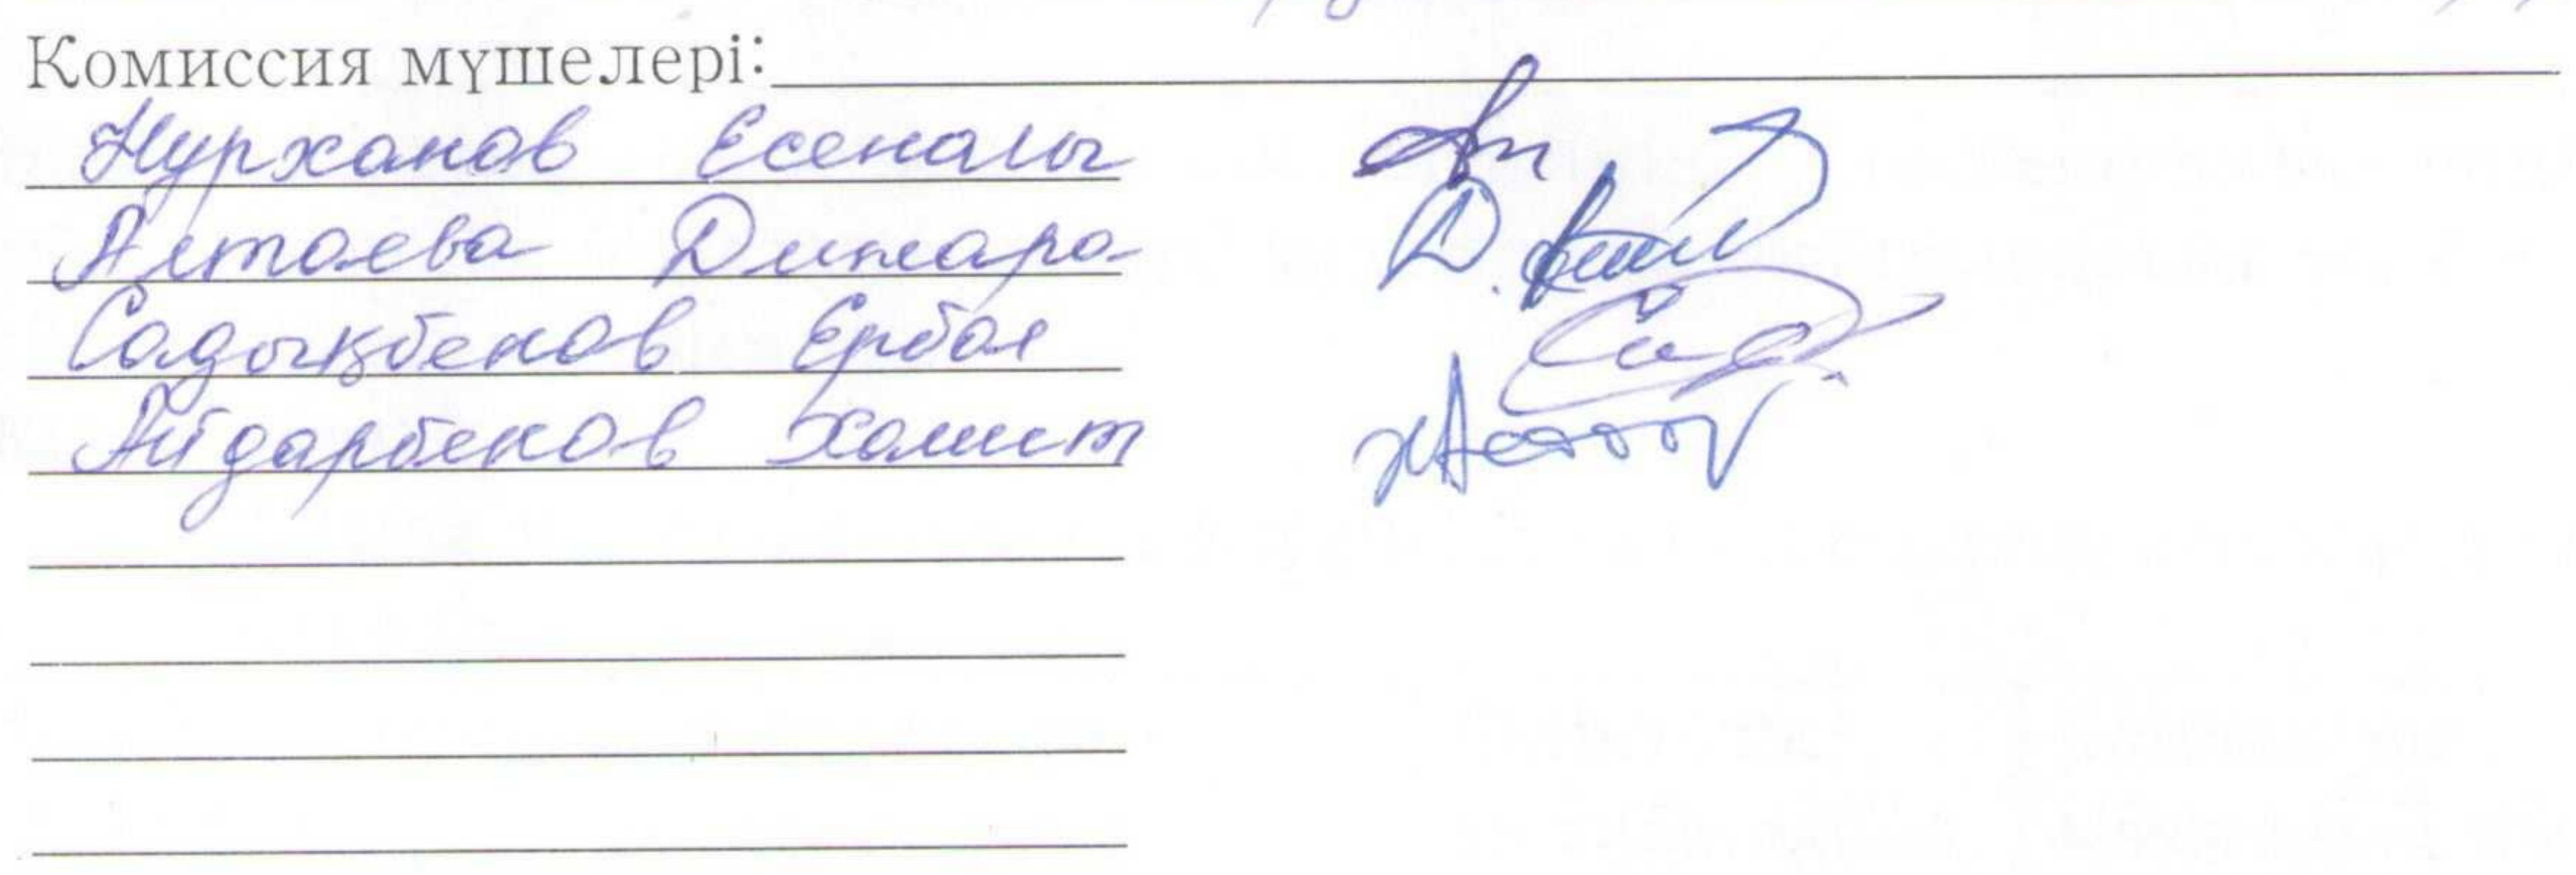 Комиссия мүшелері:
Нурханов Есеналы
Алтаева Динара
Садықбеков Ербол
Айдарбеков Хамит